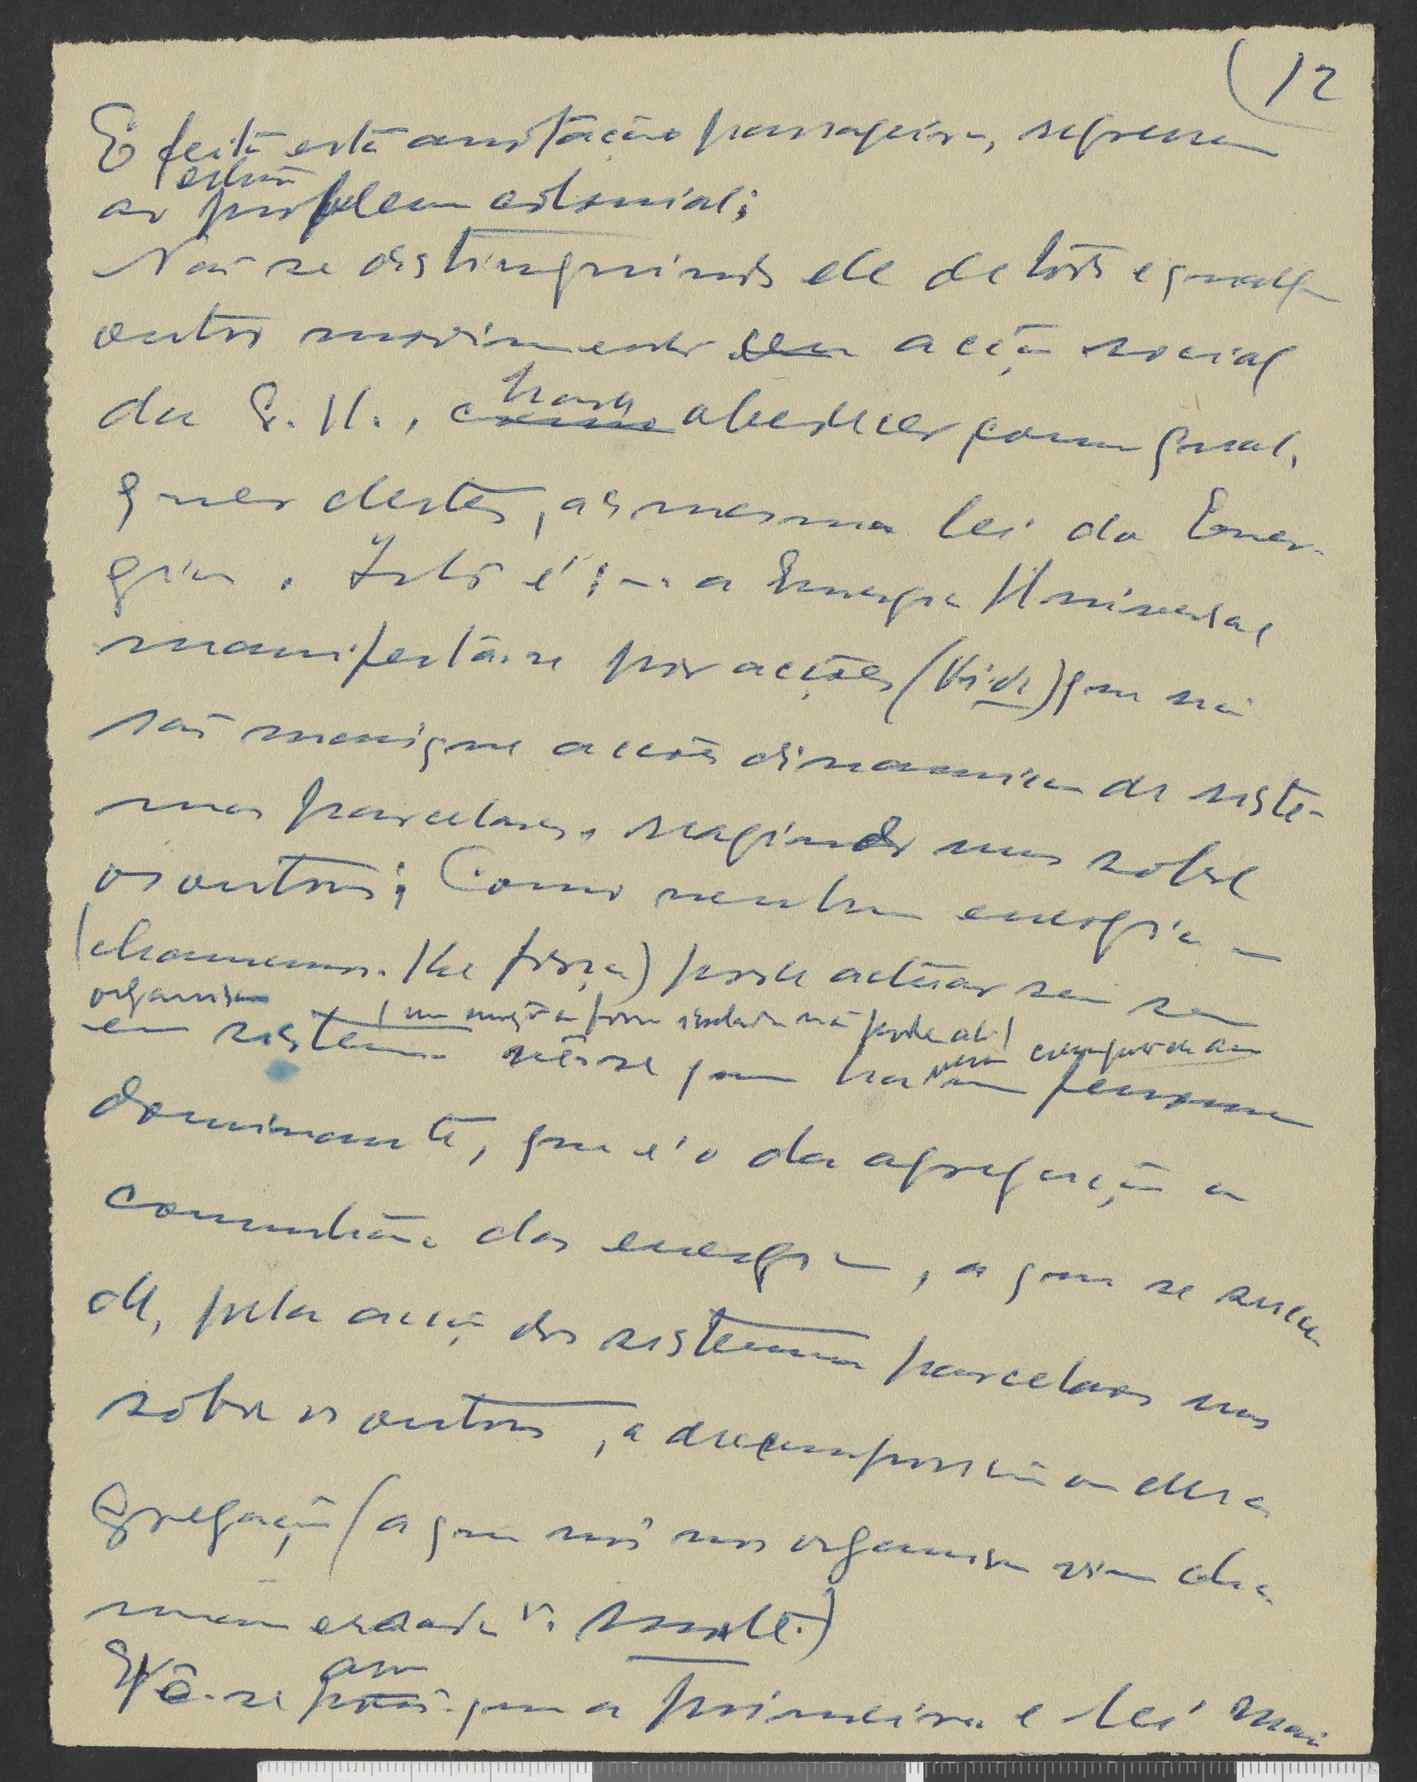 12
E feita esta anotação passageira, regressem
ao problema colonial:
Não se distinguindo ele de todo e qualquer
outro movimento ou acção social
da E. U., ha de obedecer como qual-
quer destes, á mesma lei da Ener-
gia. Isto é: — a Energia Universal
manifesta-se por acções (Vide) que não
são mais que acções dinamicas de siste-
mas parcelares, reagindo uns sobre
os outros; Como nenhuma energia —
(chamemos-lhe força) pode actuar sem ser
organismo
em sistema (uma unica força isolada não pode
vê-se que ha um fenomeno
dominante, que é o da agregação ou
comunhão das energias, a que se suce-
de, pela acção dos sistemas parcelares uns
sobre os outros, a decomposição ou desa
gregação (a que nós nos organismos vivos cha-
mam morte.)
Vê-se que a primeira e lei mais